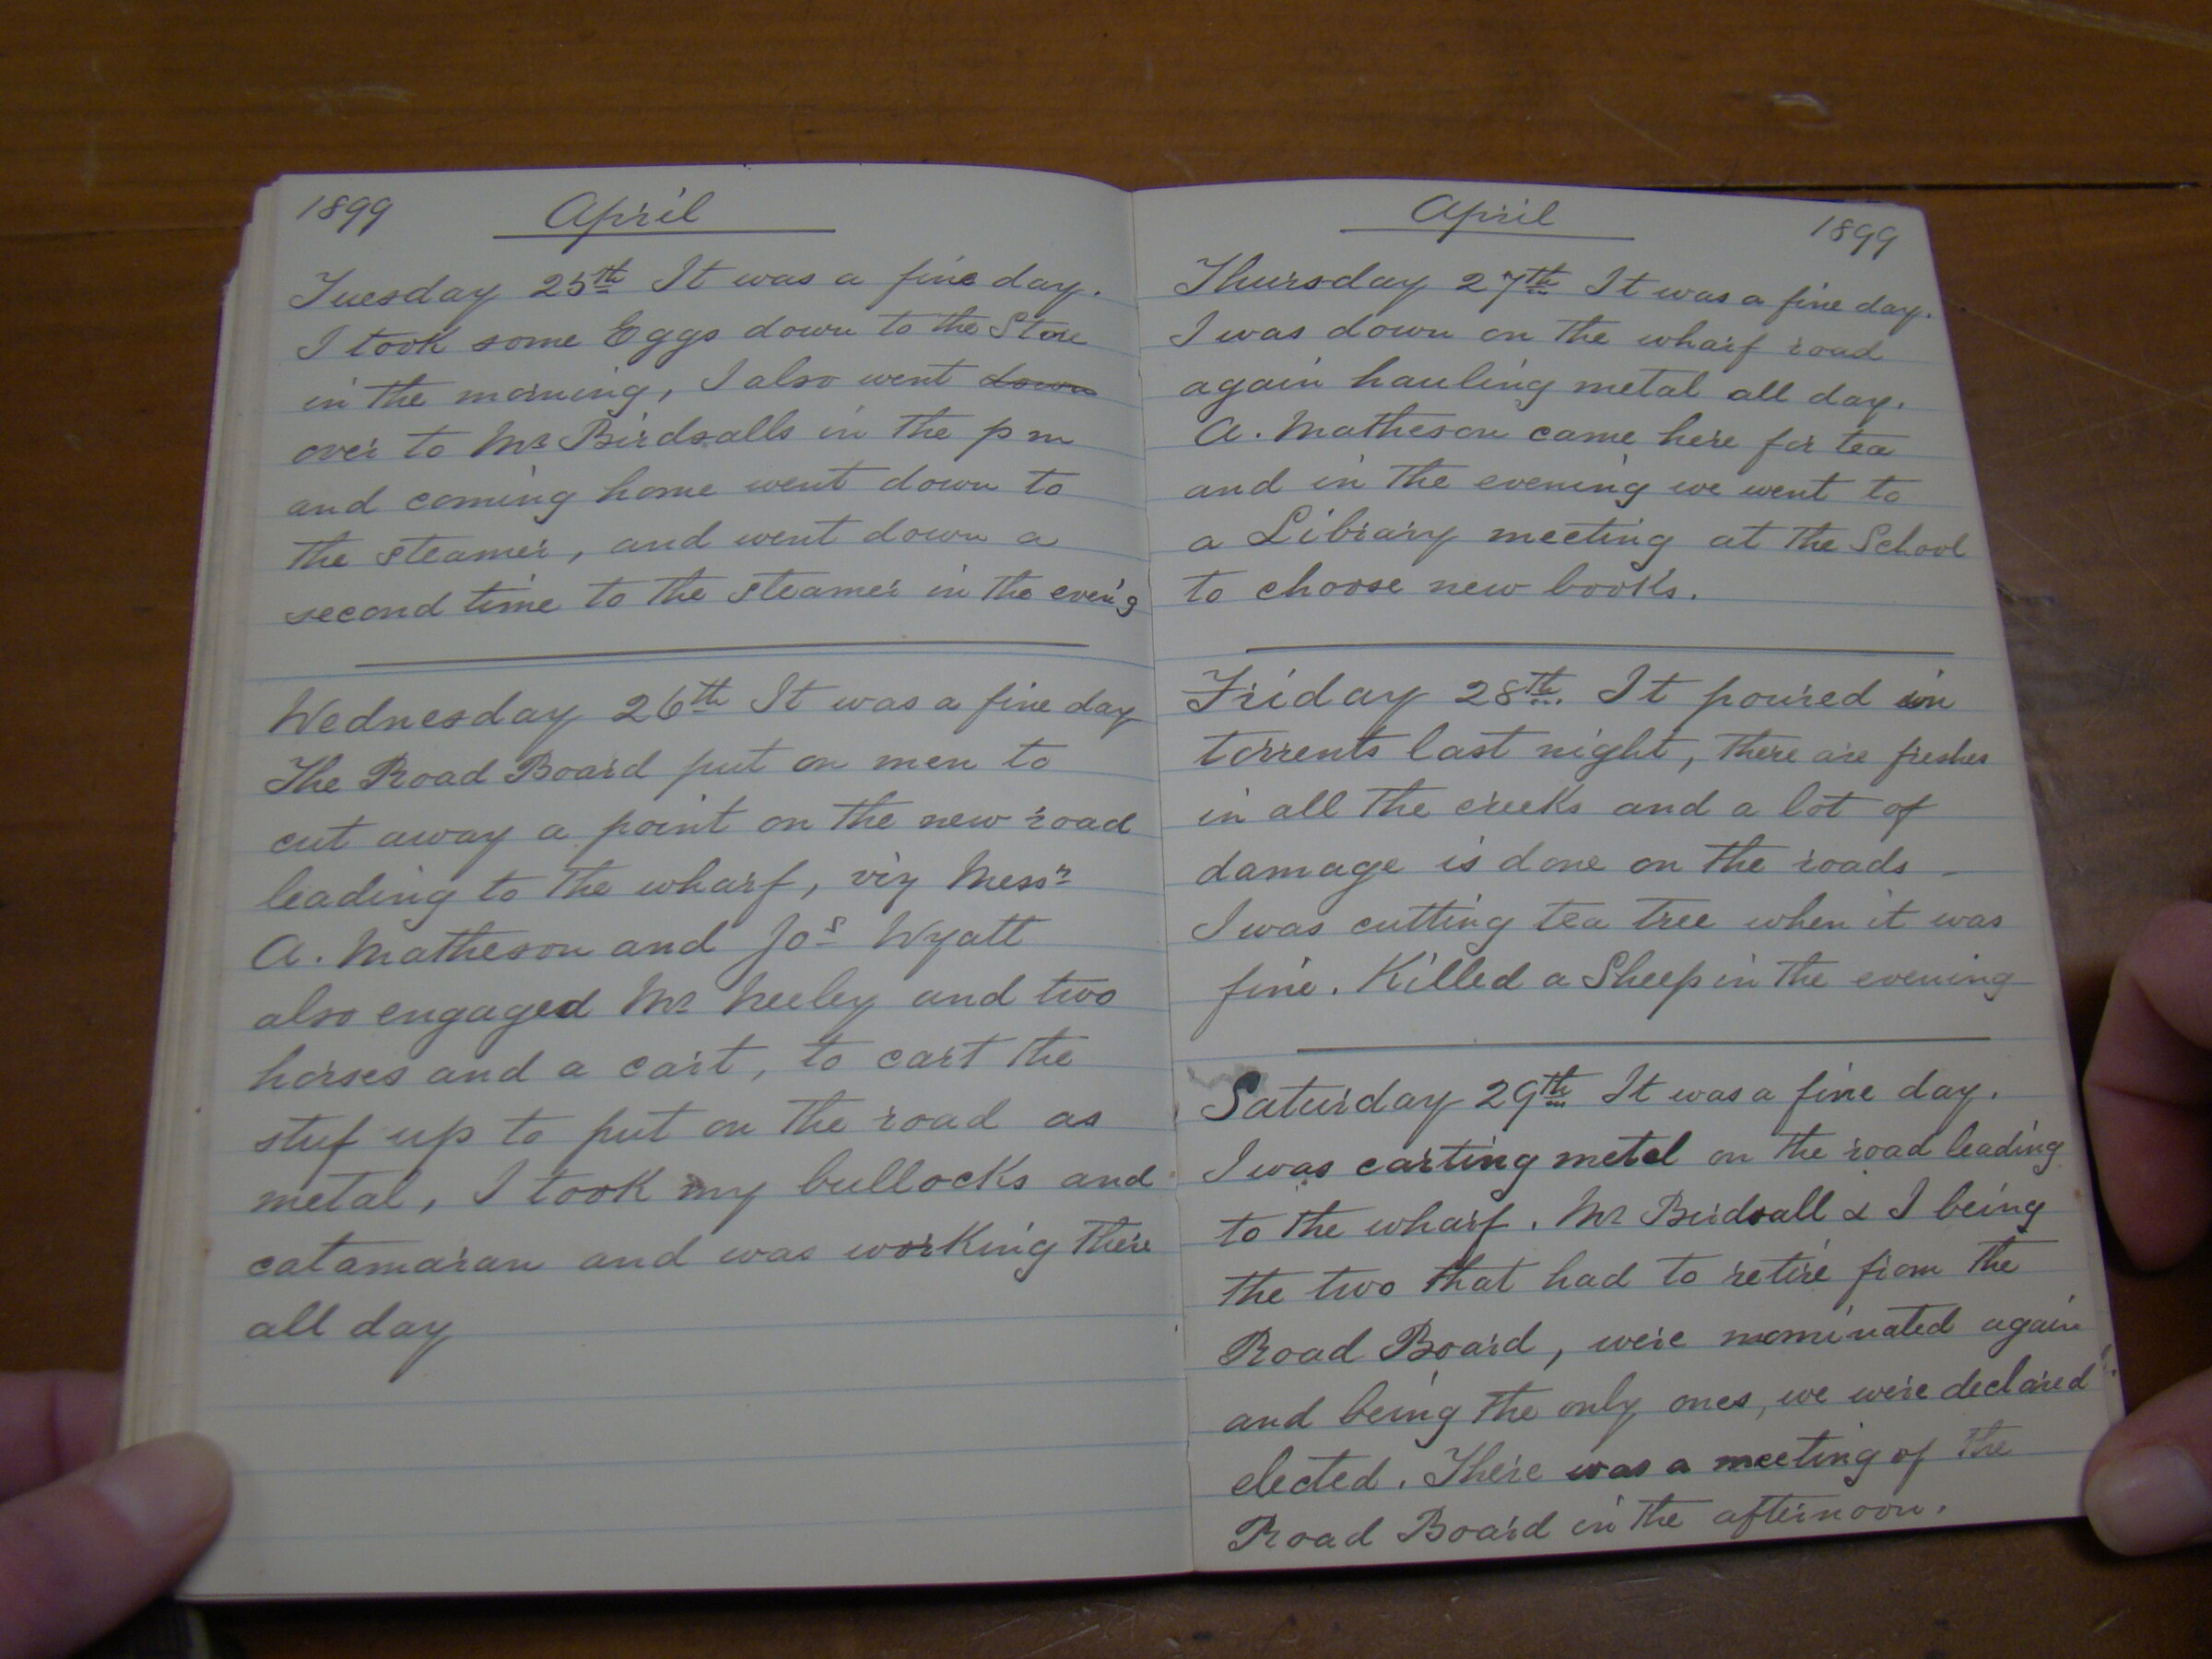 1899 April
Tuesday 25th It was a fine day.
I took some Eggs down to the Store
in the morning, I also went down
over to Mr Birdsalls in the p m
and coming home went down to
the steamer, and went down a
second time to the steamer in the even'g
Wednesday 26th It was a fine day
The Road Board put on men to
cut away a point on the new road
leading to the wharf, viz Messrs
A. Matheson and Jos Wyatt
also engaged Mr Neeley and two
horses and a cart, to cart the
stuf up to put on the road as
metal, I took my bullocks and
catamaran and was working there
all day
April 1899
Thursday 27th It was a fine day.
I was down on the wharf road
again hauling metal all day.
A. Matheson came here for tea
and in the evening we went to
a Library meeting at the School
to choose new books.
Friday 28th. It poured in
torrents last night, there are freshes
in all the creeks and a lot of
damage is done on the roads -
I was cutting tea tree when it was
fine. Killed a Sheep in the evening
Saturday 29th It was a fine day.
I was carting metal on the road leading
to the wharf. Mr Birdsall & I being
the two that had to retire from the
Road Board, were nominated again
and being the only ones, we were declared
elected. There was a meeting of the
Road Board in the afternoon.